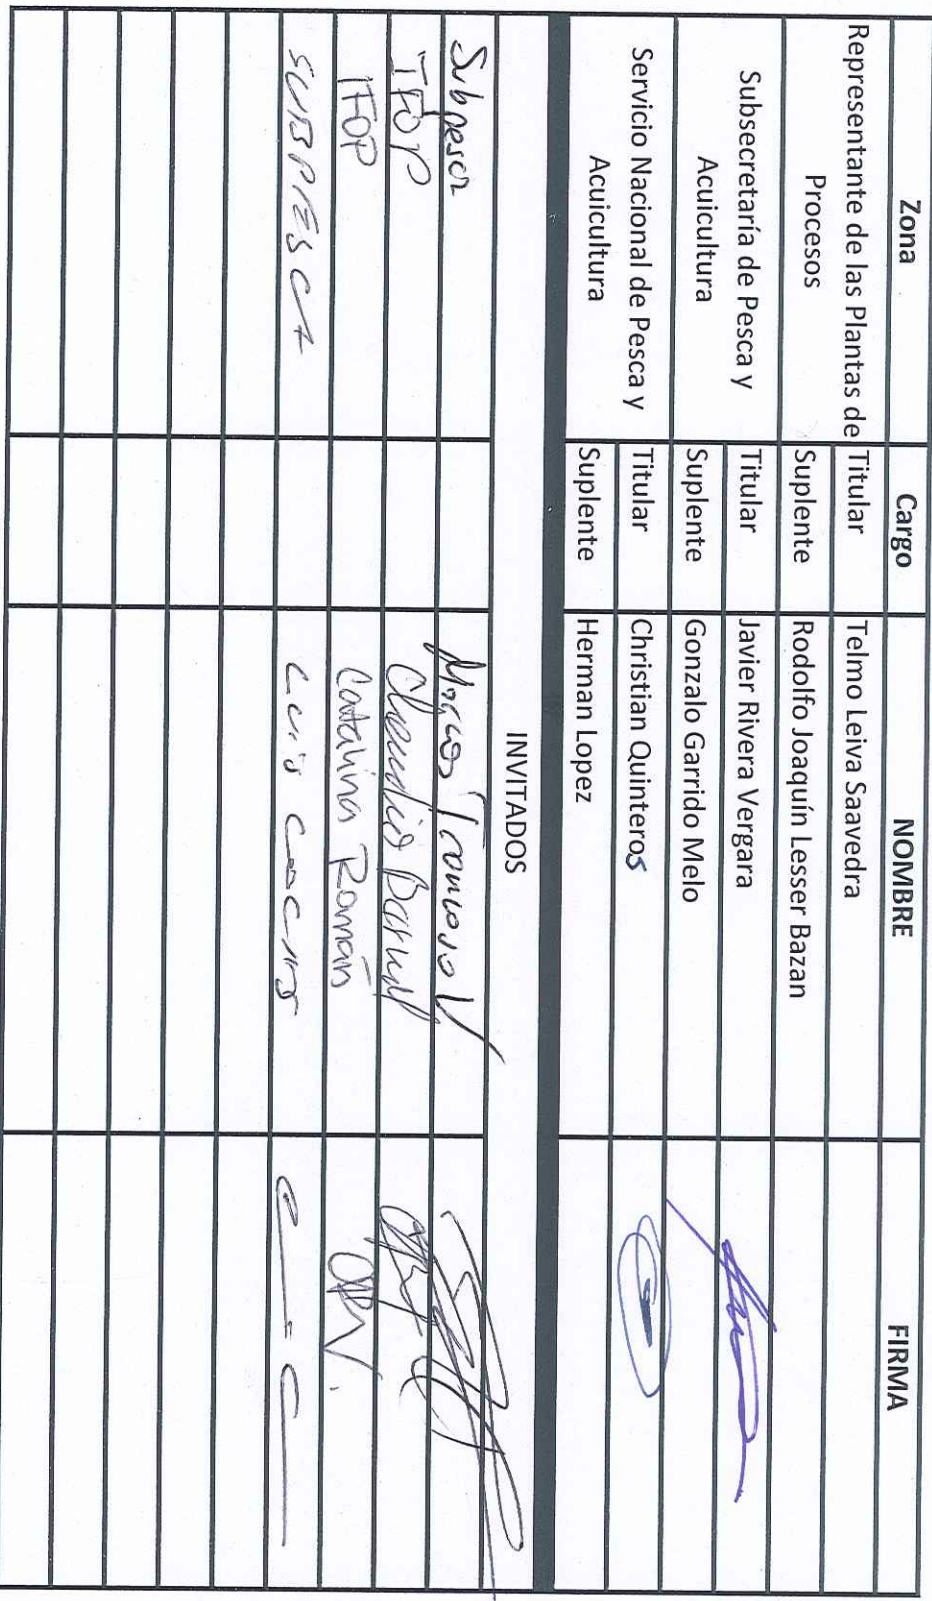 Zona Cargo NOMBRE FIRMA
Representante de las Plantas de Procesos Titular Telmo Leiva Saavedra
Suplente Rodolfo Joaquín Lesser Bazan
Subsecretaría de Pesca y Acuicultura Titular Javier Rivera Vergara
Suplente Gonzalo Garrido Melo
Servicio Nacional de Pesca y Acuicultura Titular Christian Quinteros
Suplente Herman Lopez
INVITADOS
Subpesca Marcos Troncoso V
IFOP Claudio
IFOP Catalina Román
SUBPESCA Luis